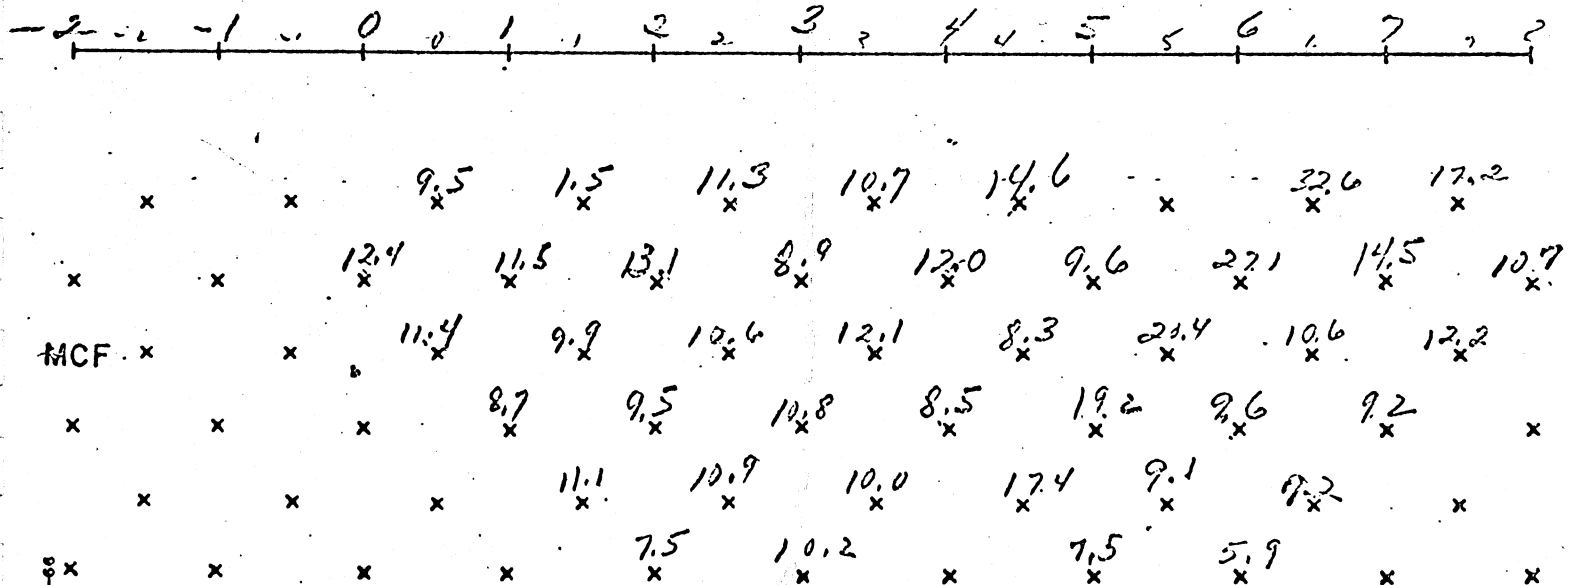 -2 -1 0 0 1 1 2 2 3 3 4 4 5 5 6 7
9.5 1.5 11.3 10.7 14.6 32.6 17.2
12.4 13.1 8.9 12.0 9.6 27.1 14.5 10.7
MCF 11.4 9.9 10.6 12.1 8.3 10.6 12.2
8.7 9.5 10.8 8.5 19.2 9.6 9.2
11.1 10.9 10.0 17.4 9.1
7.5 10.2 7.5 5.9